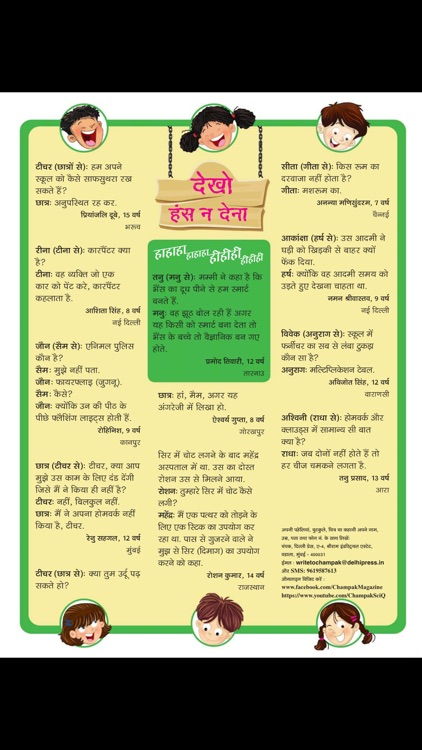 टीचर (छात्रों से): हम अपने
स्कूल को कैसे साफसुथरा रख
सकते हैं?
छात्र: अनुपस्थित रह कर.
प्रियांजलि दूबे, 15 वर्ष
भरूच
रीना (टीना से): कारपेंटर क्या
है?
टीना: वह व्यक्ति जो एक
कार को पेंट करे, कारपेंटर
कहलाता है.
आशिता सिंह, 8 वर्ष
नई दिल्ली
जौन (सैम से): एनिमल पुलिस
कौन है?
सैम: मुझे नहीं पता.
जौन: फायरफ्लाइ (जुगनू).
सैम: कैसे?
जौन: क्योंकि उन की पीठ के
पीछे फ्लैशिंग लाइट्स होती हैं.
रोहिनिश, 9 वर्ष
कानपुर
छात्र (टीचर से): टीचर, क्या आप
मुझे उस काम के लिए दंड देंगी
जिसे मैं ने किया ही नहीं है?
टीचर: नहीं, बिलकुल नहीं.
छात्र: मैं ने अपना होमवर्क नहीं
किया है, टीचर.
रेनु सहगल, 12 वर्ष
मुंबई
टीचर (छात्र से): क्या तुम उर्दू पढ़
सकते हो?
देखो
हंस न देना
हाहाहा हाहाहा हीहीही हीहीही
तनु (मनु से): मम्मी ने कहा है कि
भैंस का दूध पीने से हम स्मार्ट
बनते हैं.
मनु: वह झूठ बोल रही हैं अगर
यह किसी को स्मार्ट बना देता तो
भैंस के बच्चे तो वैज्ञानिक बन गए
होते.
प्रमोद तिवारी, 12 वर्ष
तारनाउ
छात्र: हां, मैम, अगर यह
अंगरेजी में लिखा हो.
ऐश्वर्य गुप्ता, 8 वर्ष
गोरखपुर
सिर में चोट लगने के बाद महेंद्र
अस्पताल में था. उस का दोस्त
रोशन उस से मिलने आया.
रोशन: तुम्हारे सिर में चोट कैसे
लगी?
महेंद्र: मैं एक पत्थर को तोड़ने के
लिए एक स्टिक का उपयोग कर
रहा था. पास से गुजरने वाले ने
मुझ से सिर (दिमाग) का उपयोग
करने को कहा.
रोशन कुमार, 14 वर्ष
राजस्थान
सीता (गीता से): किस रूम का
दरवाजा नहीं होता है?
गीता: मशरूम का.
अनन्या मणिसुंदरम, 7 वर्ष
चेन्नई
आकांक्षा (हर्ष से): उस आदमी ने
घड़ी को खिड़की से बाहर क्यों
फेंक दिया.
हर्ष: क्योंकि वह आदमी समय को
उड़ते हुए देखना चाहता था.
नमन श्रीवास्तव, 9 वर्ष
नई दिल्ली
विवेक (अनुराग से): स्कूल में
फर्नीचर का सब से लंबा टुकड़ा
कौन सा है?
अनुराग: मल्टिप्लिकेशन टेबल.
अविनोत सिंह, 12 वर्ष
वाराणसी
अश्विनी (राधा से): होमवर्क और
क्लाउड्स में सामान्य सी बात
क्या है?
राधा: जब दोनों नहीं होते हैं तो
हर चीज चमकने लगता है.
तनु प्रसाद, 13 वर्ष
आरा
अपनी पहेलियां, चुटकुले, चित्र या कहानी अपने नाम,
उम्र, पता तथा फोन नं. के साथ लिखें:
चंपक, दिल्ली प्रेस, ए-4, श्रीराम इंडस्ट्रियल एस्टेट,
वडाला, मुंबई - 400031
ईमेल : writetochampak@delhipress.in
और SMS: 9619587613
औनलाइन विजिट करें :
www.facebook.com/ChampakMagazine
https://www.youtube.com/ChampakSciQ